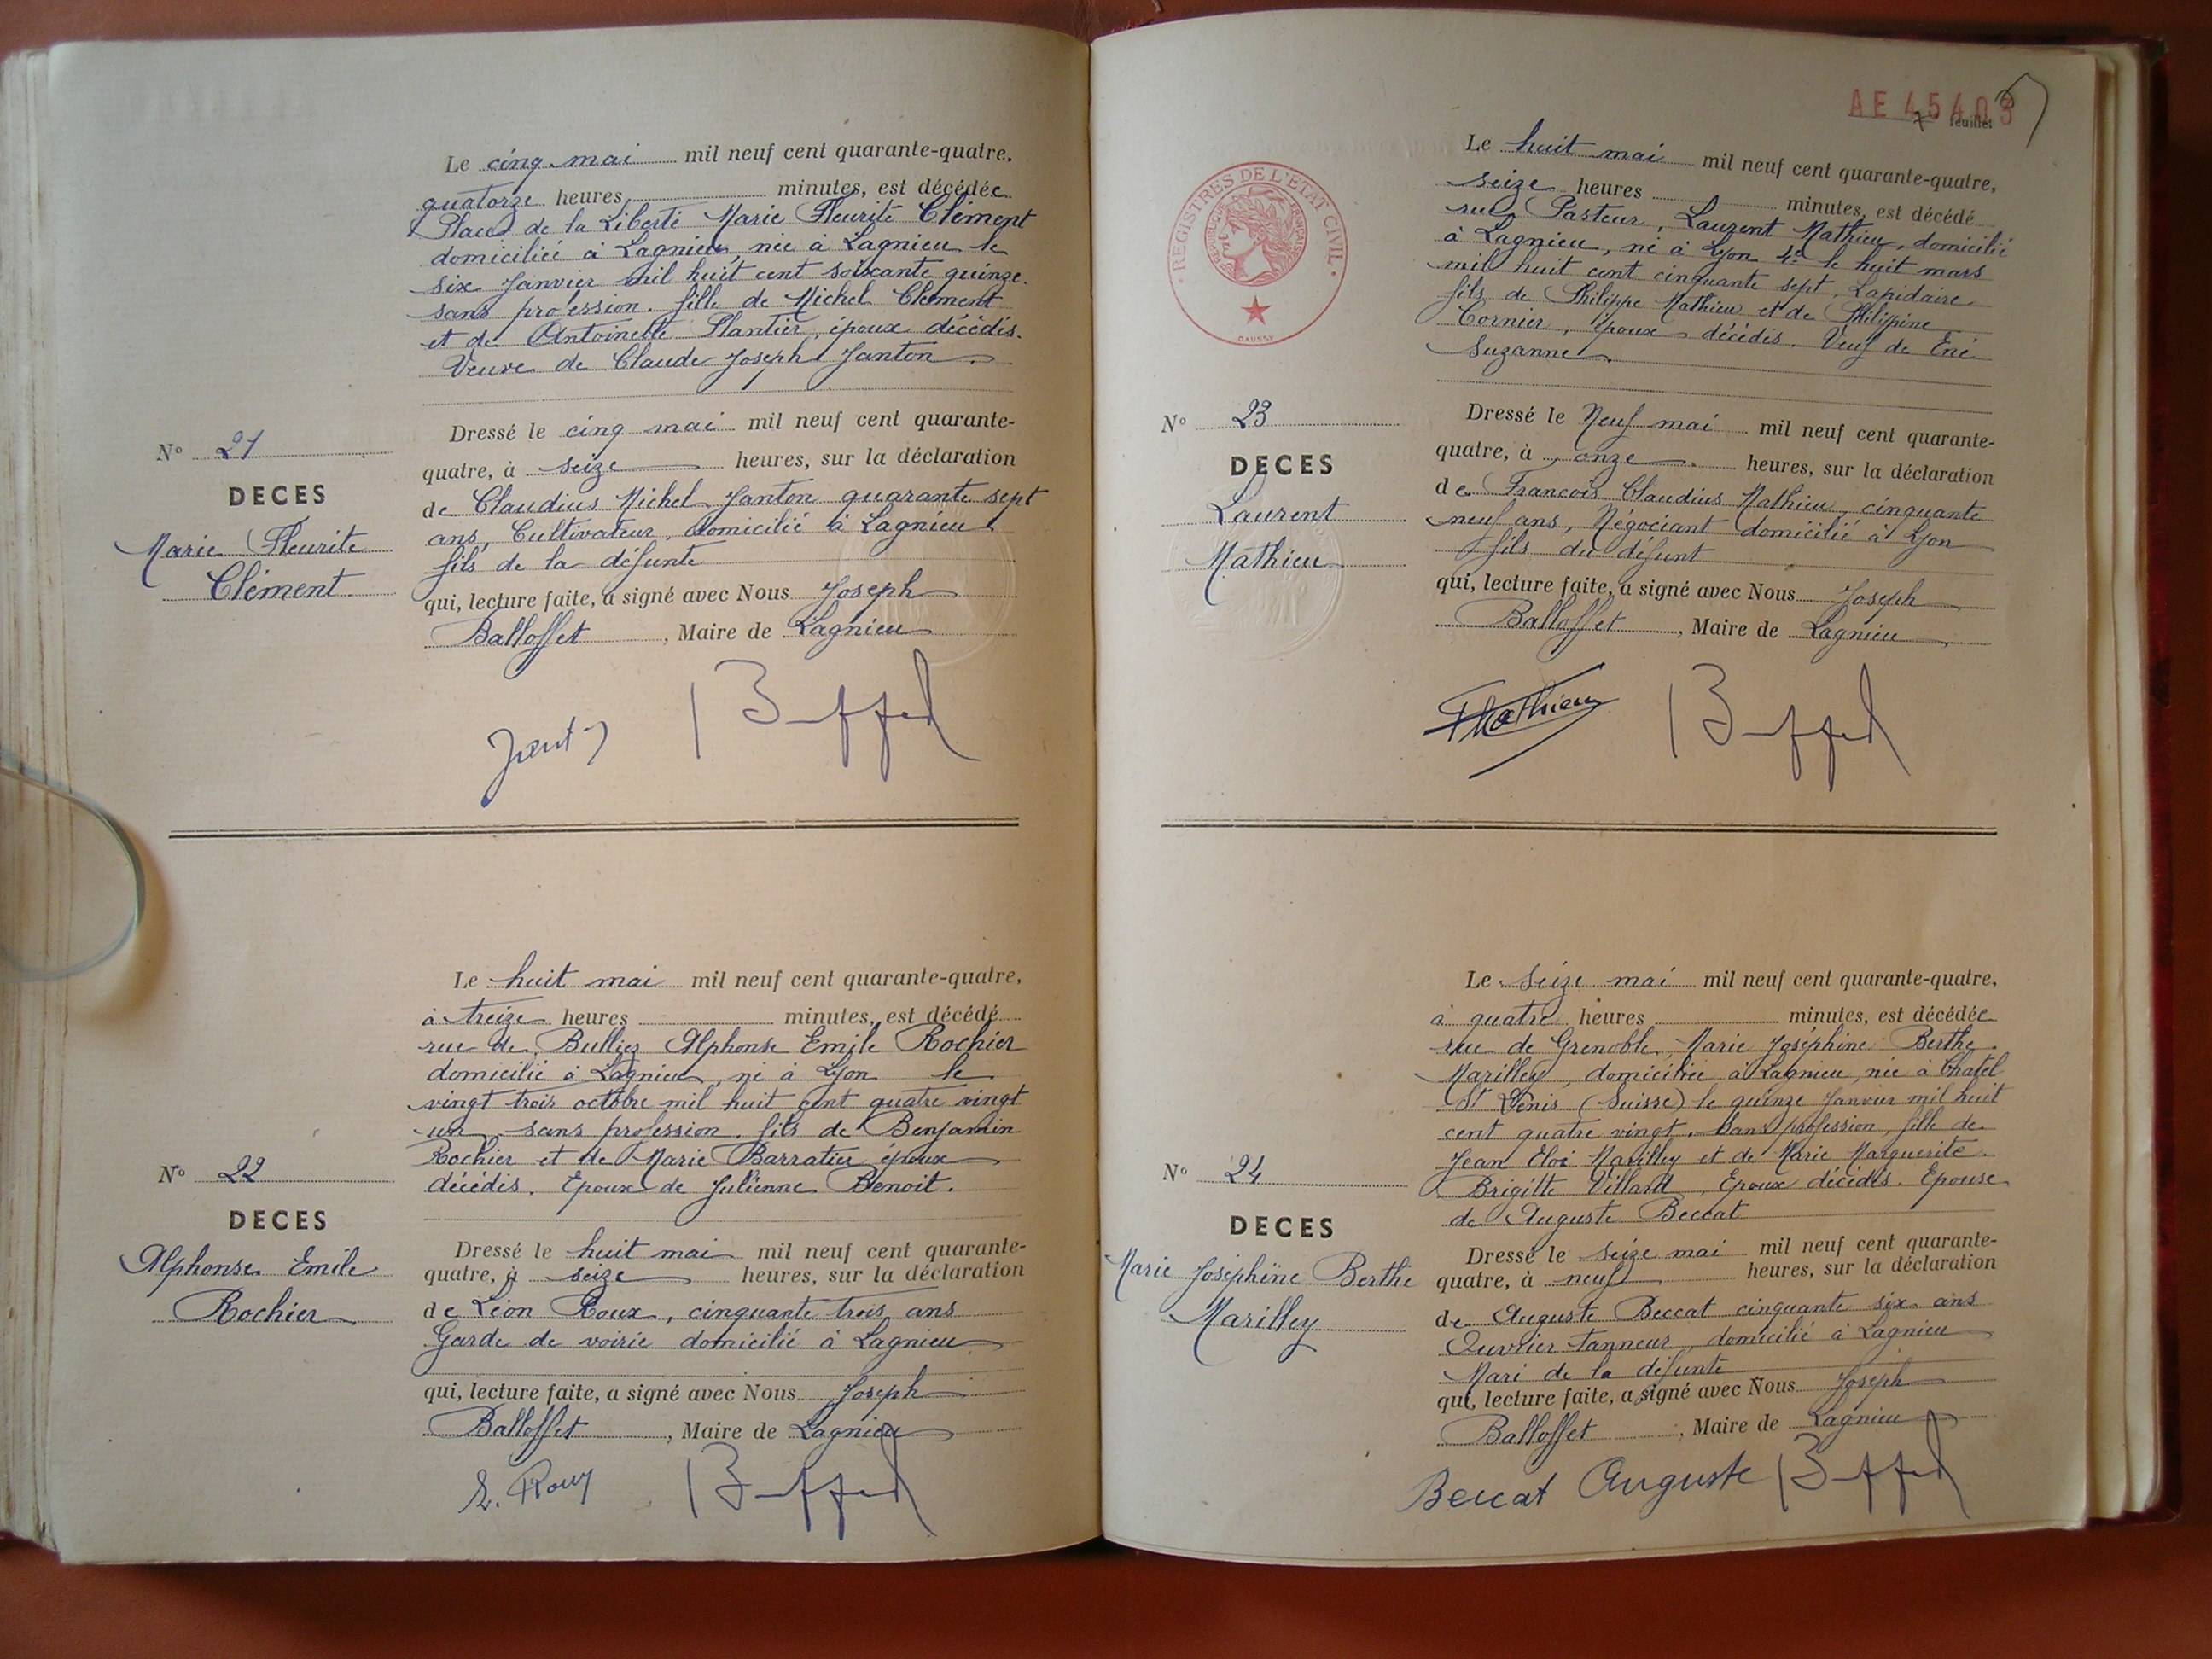 Le cinq mai mil neuf cent quarante-quatre,
quatorze heures minutes, est décédée
Place de la Liberté Marie Fleurite Clément
domiciliée à Lagnieu, née à Lagnieu le
six Janvier mil huit cent soixante quinze.
sans profession. fille de Michel Clément
et de Antoinette Plantier, époux décédés.
Veuve de Claude Joseph Janton.
Nº 21
DECES
Marie Fleurite
Clément
Dressé le cinq mai mil neuf cent quarante-
quatre, à seize heures, sur la déclaration
de Claudius Michel Janton quarante sept
ans, Cultivateur, domicilié à Lagnieu
fils de la défunte
qui, lecture faite, a signé avec Nous Joseph
Balloffet, Maire de Lagnieu
Le huit mai mil neuf cent quarante-quatre,
à treize heures minutes, est décédé
rue de Bulliez Alphonse Emile Rochier
domicilié à Lagnieu, né à Lyon le
vingt trois octobre mil huit cent quatre vingt
un, sans profession. fils de Benjamin
Rochier et de Marie Barratier époux
décédés. Epoux de Julienne Benoit.
Nº 22
DECES
Alphonse Emile
Rochier
Dressé le huit mai mil neuf cent quarante-
quatre, à seize heures, sur la déclaration
de Léon Roux, cinquante trois ans
Garde de voirie domicilié à Lagnieu
qui, lecture faite, a signé avec Nous Joseph
Balloffet, Maire de Lagnieu
L. Roux
AE 45403
7e feuillet
REGISTRES DE L'ETAT CIVIL
Le huit mai mil neuf cent quarante-quatre,
seize heures minutes, est décédé
rue Pasteur, Laurent Mathieu, domicilié
à Lagnieu, né à Lyon 4e le huit mars
mil huit cent cinquante sept, Lapidaire
fils de Philippe Mathieu et de Philippine
Cornier, époux décédés. Veuf de Ené
Suzanne.
Nº 23
DECES
Laurent
Mathieu
Dressé le Neuf mai mil neuf cent quarante-
quatre, à onze heures, sur la déclaration
de Francois Claudius Mathieu, cinquante
neuf ans, Négociant domicilié à Lyon
fils du défunt
qui, lecture faite, a signé avec Nous Joseph
Balloffet, Maire de Lagnieu
FMathieu
Le Seize mai mil neuf cent quarante-quatre,
à quatre heures minutes, est décédée
rue de Grenoble, Marie Joséphine Berthe
Marilley, domiciliée à Lagnieu, née à Chatel
St Denis (Suisse) le quinze Janvier mil huit
cent quatre vingt. Sans profession, fille de
Jean Eloi Marilley et de Marie Marguerite
Brigitte Villard, Epoux décédés. Epouse
de Auguste Beccat
Nº 24
DECES
Marie Joséphine Berthe
Marilley
Dressé le seize mai mil neuf cent quarante-
quatre, à neuf heures, sur la déclaration
de Auguste Beccat cinquante six ans
Ouvrier tanneur, domicilié à Lagnieu
Mari de la défunte
qui, lecture faite, a signé avec Nous Joseph
Balloffet, Maire de Lagnieu
Beccat Auguste